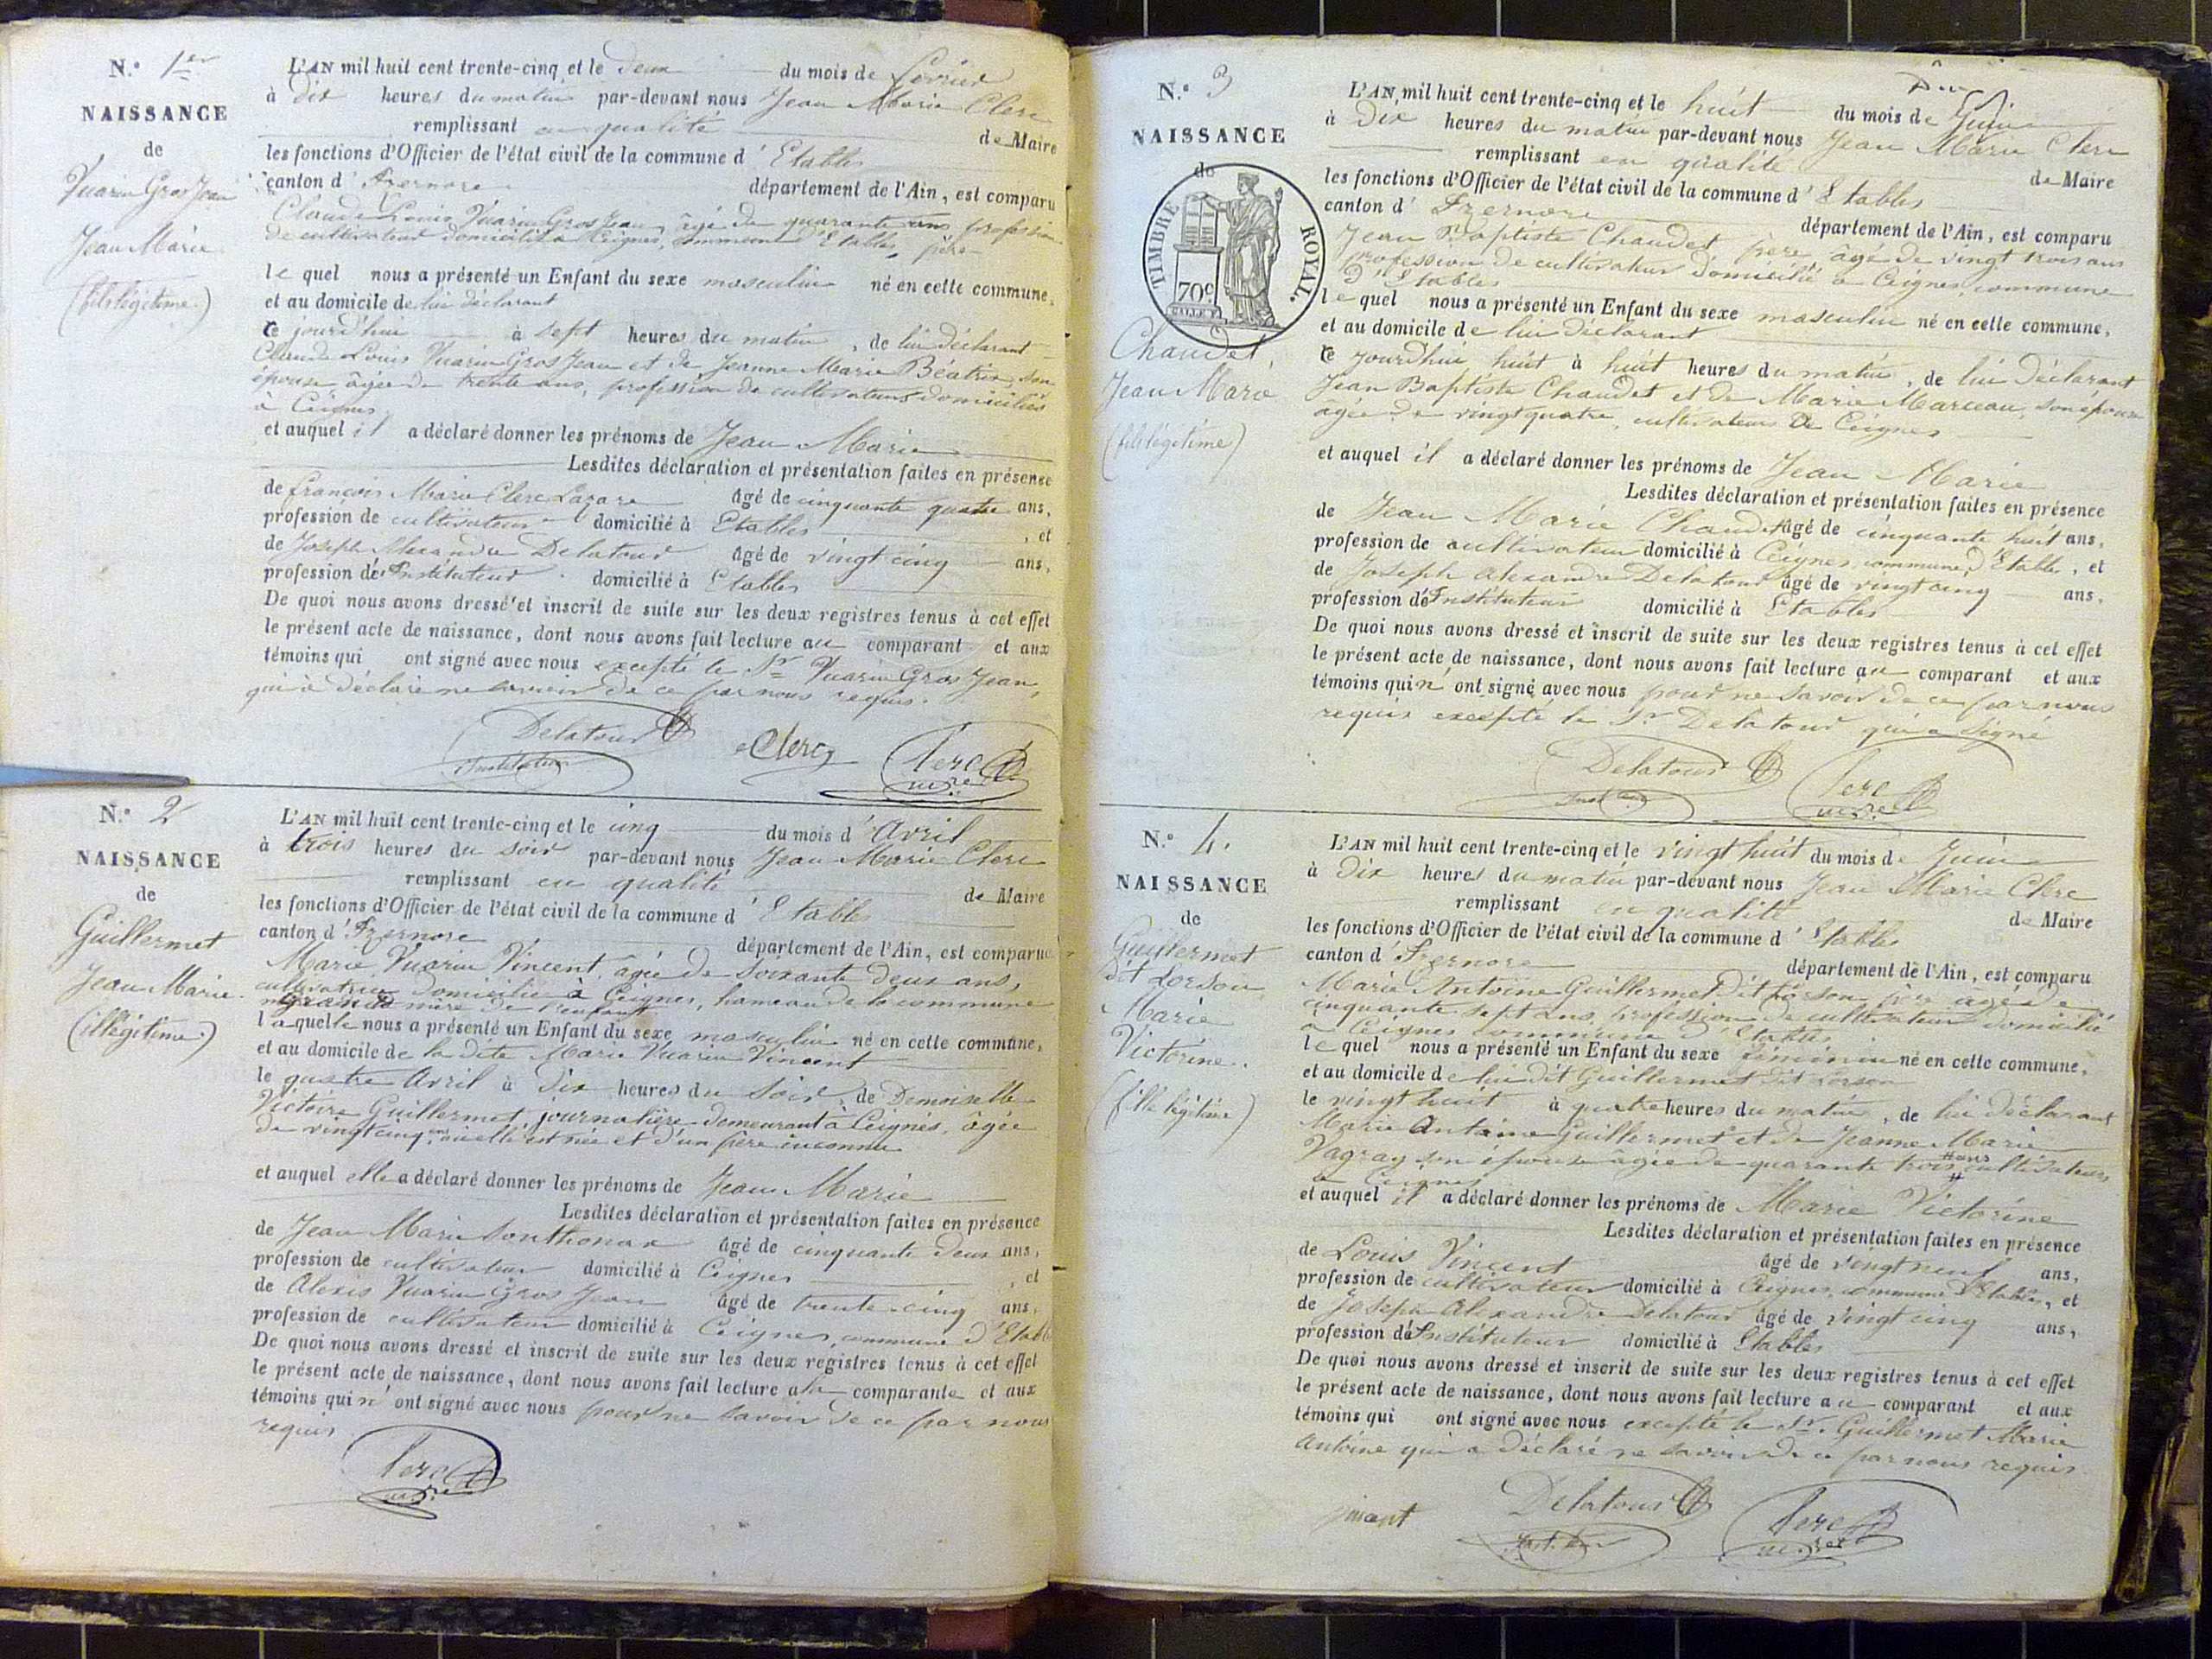 N.º 1er
NAISSANCE
de
Vuarin Gros Jean
Jean Marie
(fils légitime.)
L'AN mil huit cent trente-cinq et le deux du mois de février
à dix heures du matin par-devant nous Jean Marie Clerc
remplissant en qualité de Maire
les fonctions d'Officier de l'état civil de la commune d'Etables
canton d'Izernore département de l'Ain, est comparu
Claude Louis Vuarin Gros Jean, âgé de quarante ans profession
de cultivateur domicilié à Ceignes, commune d'Etables, père
lequel nous a présenté un Enfant du sexe masculin né en cette commune,
et au domicile de lui déclarant
ce jourd'hui à sept heures du matin, de lui déclarant
Claude Louis Vuarin Gros Jean et de Jeanne Marie Béatrix, son
épouse âgée de trente ans, profession de cultivateurs domiciliés
à Ceignes
et auquel il a déclaré donner les prénoms de Jean Marie
Lesdites déclaration et présentation faites en présence
de françois Marie Clerc Lazare âgé de cinquante quatre ans,
profession de cultivateur domicilié à Etables, et
de Joseph Alexandre Delatour âgé de vingt cinq ans,
profession d'Instituteur domicilié à Etables
De quoi nous avons dressé et inscrit de suite sur les deux registres tenus à cet effet
le présent acte de naissance, dont nous avons fait lecture au comparant et aux
témoins qui ont signé avec nous excepté le Sr Vuarin Gros Jean,
qui à déclaré ne savoir de ce par nous requis.
Delatour Clerc Clerc
Instituteur mre
N.º 2
NAISSANCE
de
Guillermet
Jean Marie.
(illégitime.)
L'AN mil huit cent trente-cinq et le cinq du mois d'Avril
à trois heures du soir par-devant nous Jean Marie Clerc
remplissant en qualité de Maire
les fonctions d'Officier de l'état civil de la commune d'Etables
canton d'Izernore département de l'Ain, est comparue
Marie Vuarin Vincent, âgée de soixante deux ans,
cultivatrice domiciliée à Ceignes, hameau de la commune
grande mère de l'enfant
laquelle nous a présenté un Enfant du sexe masculin né en cette commune,
et au domicile de la dite Marie Vuarin Vincent
le quatre Avril à dix heures du soir, de Demoiselle
Victoire Guillermet, journalière demeurant à Ceignes, âgée
de vingt cinq ans, est née et d'un père inconnu
et auquel elle a déclaré donner les prénoms de Jean Marie
Lesdites déclaration et présentation faites en présence
de Jean Marie Sonthonax âgé de cinquante deux ans,
profession de cultivateur domicilié à Ceignes, et
de Alexis Vuarin Gros Jean âgé de trente-cinq ans,
profession de cultivateur domicilié à Ceignes, commune d'Etables
De quoi nous avons dressé et inscrit de suite sur les deux registres tenus à cet effet
le présent acte de naissance, dont nous avons fait lecture a la comparante et aux
témoins qui n'ont signé avec nous pour ne savoir de ce par nous
requis
Clerc
mre
N.º 3
NAISSANCE
de
TIMBRE ROYAL.
70c
Chaudet,
Jean Marie
(fils légitime)
L'AN mil huit cent trente-cinq et le huit du mois de Juin
à dix heures du matin par-devant nous Jean Marie Clerc
remplissant en qualité de Maire
les fonctions d'Officier de l'état civil de la commune d'Etables
canton d'Izernore département de l'Ain, est comparu
Jean Baptiste Chaudet père, âgé de vingt trois ans
profession de cultivateur domicilié à Ceignes commune
d'Etables
lequel nous a présenté un Enfant du sexe masculin né en cette commune,
et au domicile de lui déclarant
ce jourd'hui huit à huit heures du matin, de lui déclarant
Jean Baptiste Chaudet et de Marie Marceau, son épouse
âgée de vingt quatre, cultivateurs de Ceignes
et auquel il a déclaré donner les prénoms de Jean Marie
Lesdites déclaration et présentation faites en présence
de Jean Marie Chaudet âgé de cinquante huit ans,
profession de cultivateur domicilié à Ceignes, commune d'Etables, et
de Joseph Alexandre Delatour âgé de vingt cinq ans,
profession d'Instituteur domicilié à Etables
De quoi nous avons dressé et inscrit de suite sur les deux registres tenus à cet effet
le présent acte de naissance, dont nous avons fait lecture au comparant et aux
témoins qui n'ont signé avec nous pour ne savoir de ce par nous
requis excepté le Sr Delatour qui a signé
Delatour Clerc
mre
N.º 4.
NAISSANCE
de
Guillermet
dit Lorson
Marie
Victorine.
(fille légitime)
L'AN mil huit cent trente-cinq et le vingt huit du mois de Juin
à dix heures du matin par-devant nous Jean Marie Clerc
remplissant en qualité de Maire
les fonctions d'Officier de l'état civil de la commune d'Etables
canton d'Izernore département de l'Ain, est comparu
Marie Antoine Guillermet dit Lorson père âgé de
cinquante sept ans, profession de cultivateur domicilié
à Ceignes commune d'Etables
lequel nous a présenté un Enfant du sexe féminin né en cette commune,
et au domicile de lui dit Guillermet dit Lorson
le vingt huit à quatre heures du matin, de lui déclarant
Marie Antoine Guillermet et de Jeanne Marie
Vagray son épouse âgée de quarante trois ans cultivateurs
à Ceignes
et auquel il a déclaré donner les prénoms de Marie Victorine
Lesdites déclaration et présentation faites en présence
de Louis Vincent âgé de vingt neuf ans,
profession de cultivateur domicilié à Ceignes, commune d'Etables, et
de Joseph Alexandre Delatour âgé de vingt cinq ans,
profession d'Instituteur domicilié à Etables
De quoi nous avons dressé et inscrit de suite sur les deux registres tenus à cet effet
le présent acte de naissance, dont nous avons fait lecture au comparant et aux
témoins qui ont signé avec nous excepté le Sr. Guillermet Marie
Antoine qui a déclaré ne savoir de ce par nous requis
Delatour Clerc
mre